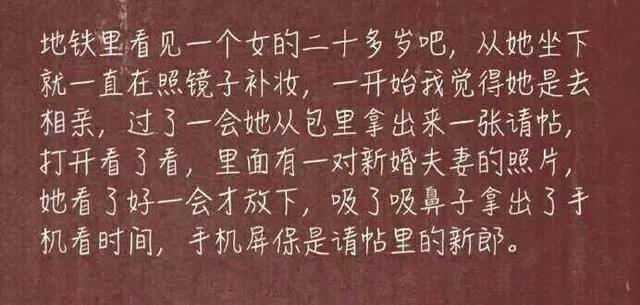 地铁里看见一个女的二十多岁吧，从她坐下
就一直在照镜子补妆，一开始我觉得她是去
相亲，过了一会她从包里拿出来一张请帖，
打开看了看，里面有一对新婚夫妻的照片，
她看了好一会才放下，吸了吸鼻子拿出了手
机看时间，手机屏保是请帖里的新郎。